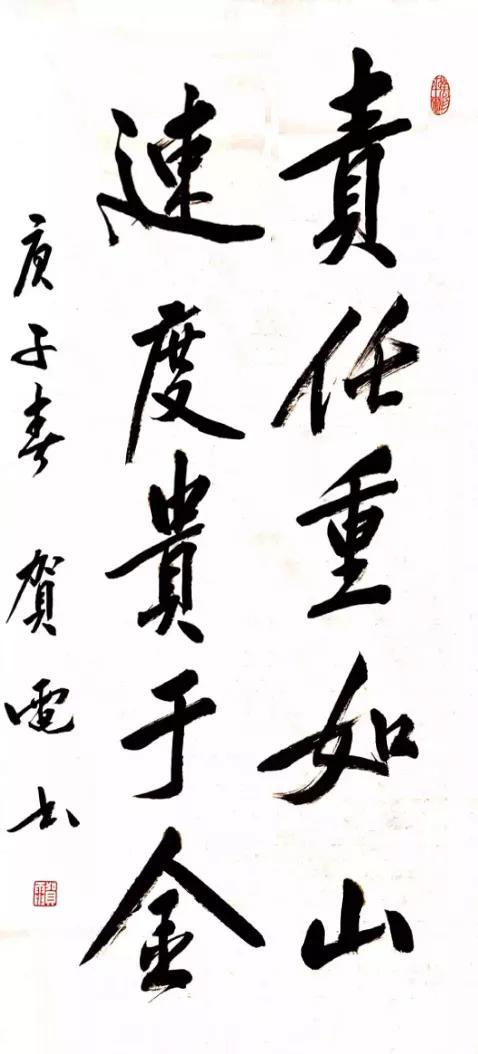 責任重如山
速度貴于金
庚子春 賀電书